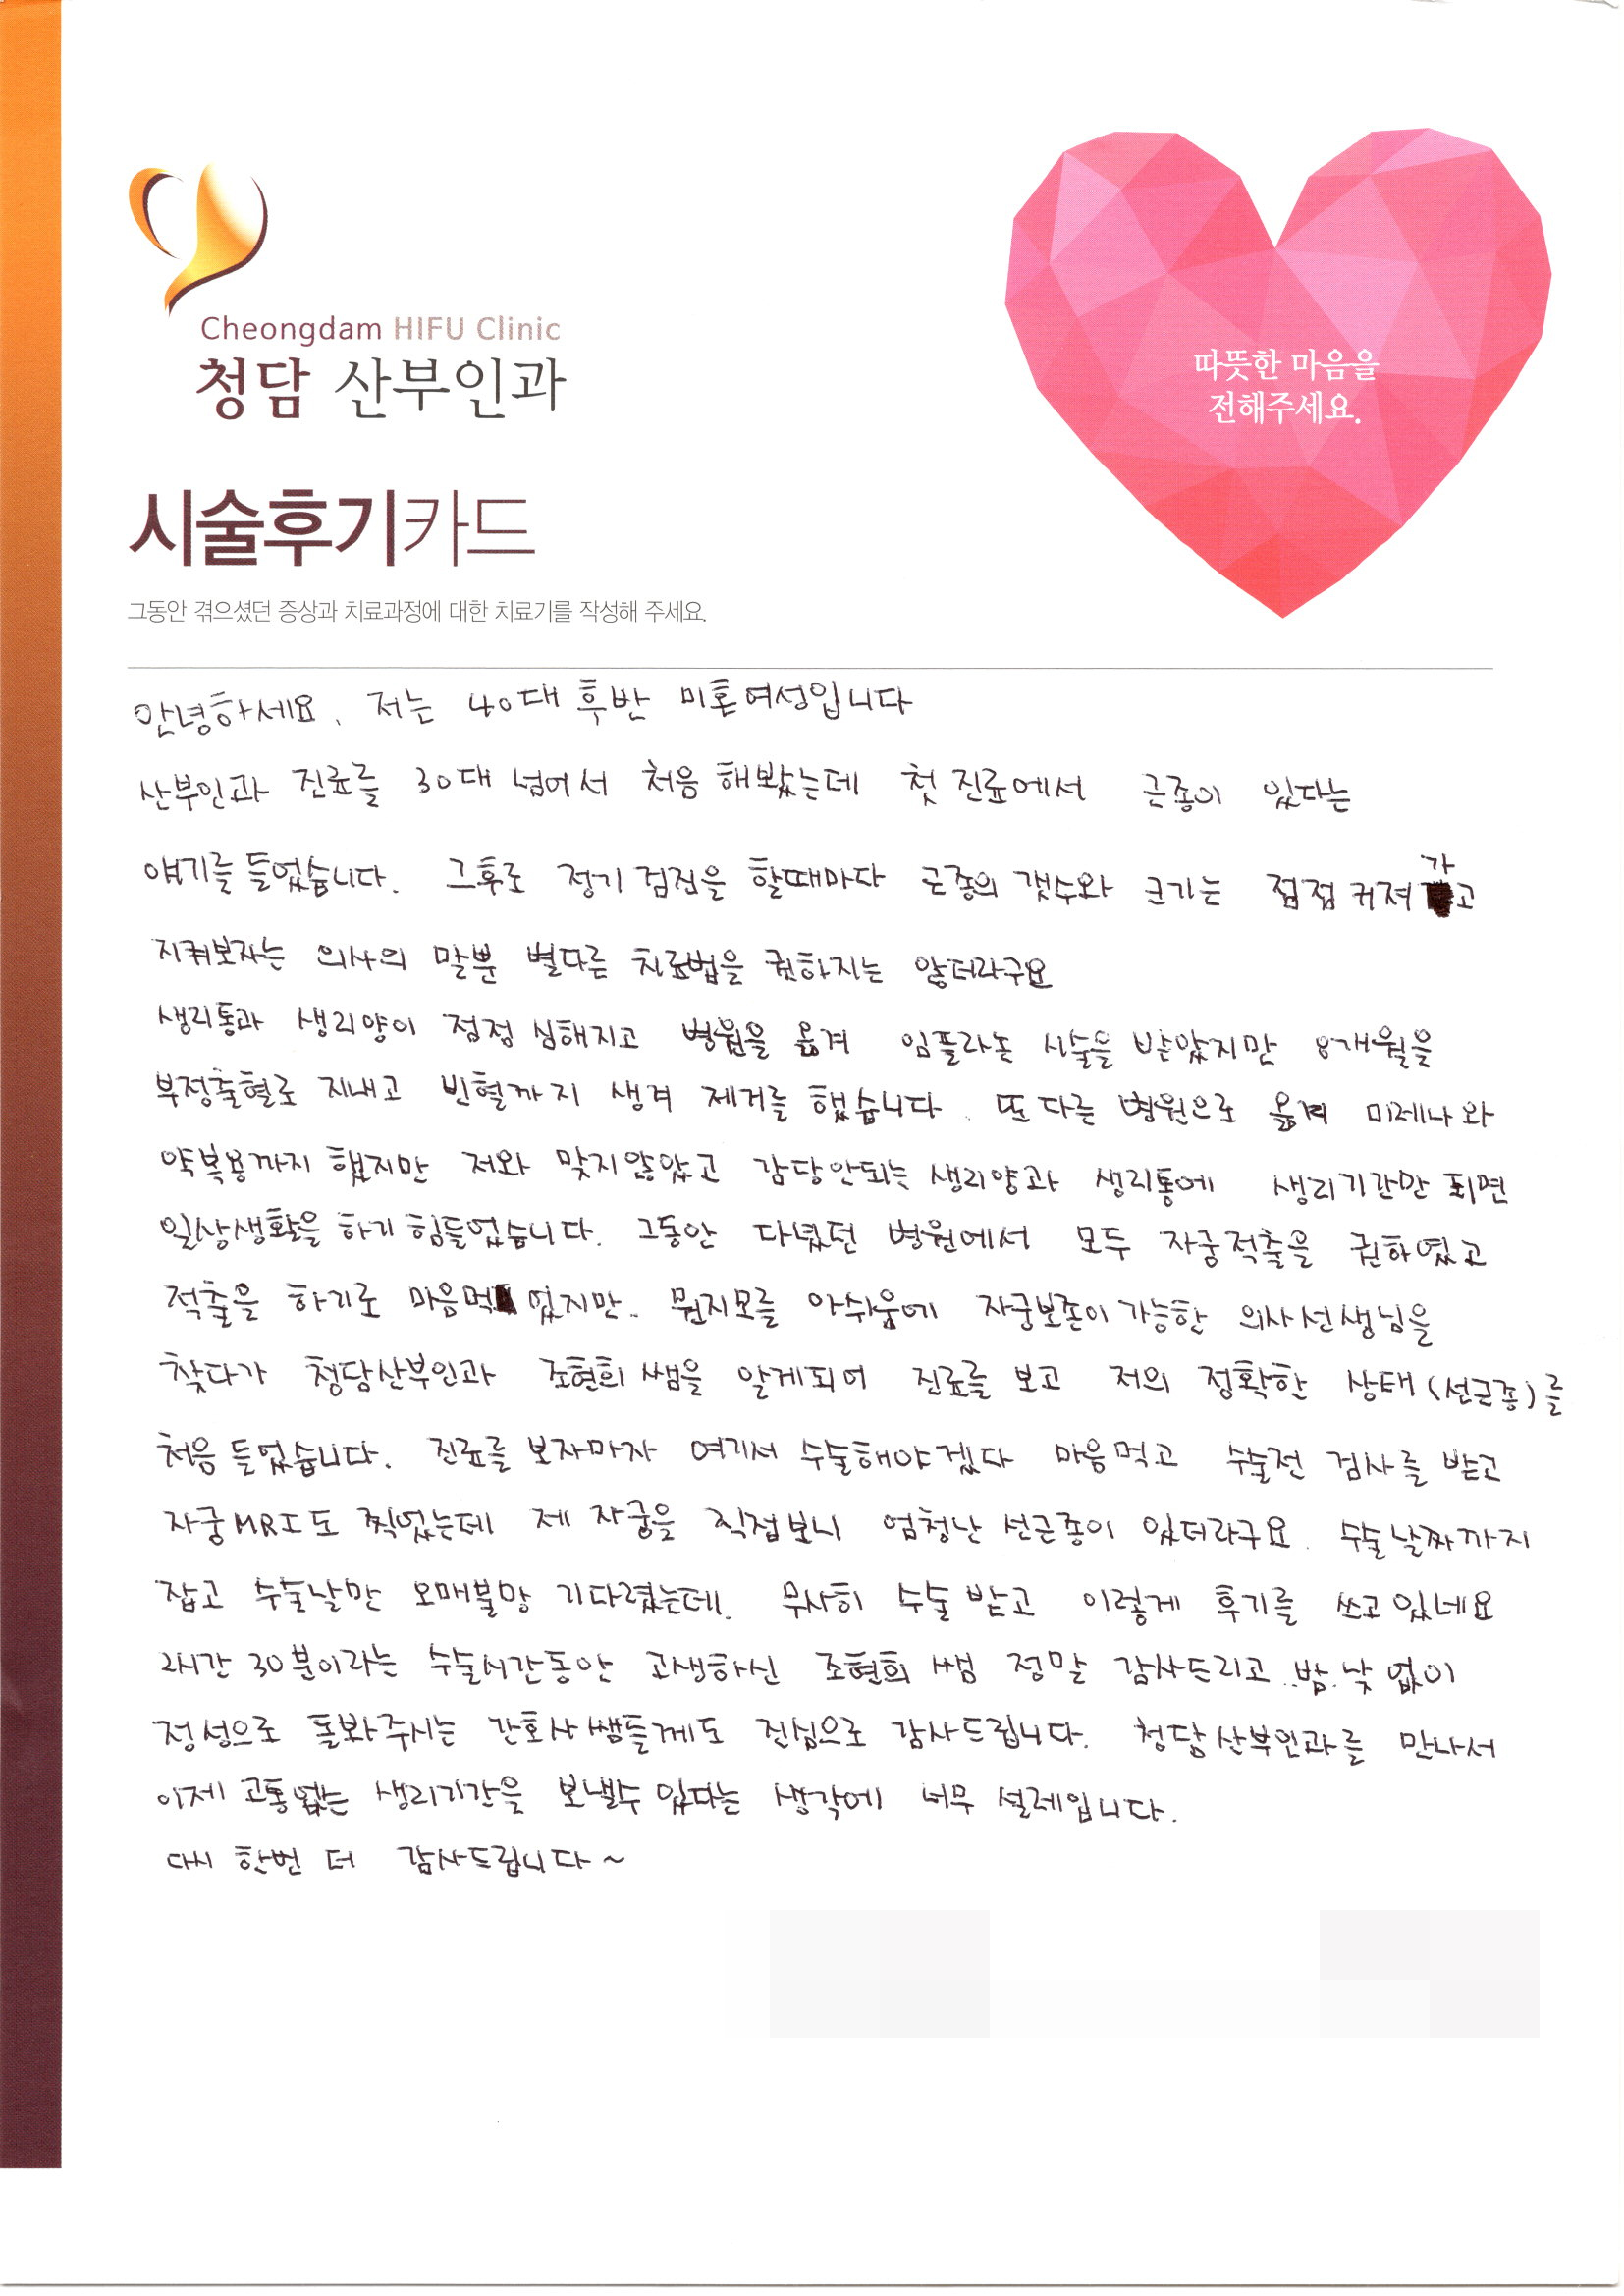 Cheongdam HIFU Clinic
청담 산부인과
따뜻한 마음을
전해주세요.
시술후기카드
그동안 겪으셨던 증상과 치료과정에 대한 치료기를 작성해 주세요.
안녕하세요. 저는 40대 후반 미혼여성입니다
산부인과 진료를 30대 넘어서 처음 해봤는데 첫 진료에서 근종이 있다는
얘기를 들었습니다. 그후로 정기검진을 할때마다 근종의 갯수와 크기는 점점 커져가고
지켜보자는 의사의 말뿐 별다른 치료법을 권하지는 않더라구요
생리통과 생리양이 점점 심해지고 병원을 옮겨 임플라논 시술을 받았지만 8개월을
부정출혈로 지내고 빈혈까지 생겨 제거를 했습니다. 또 다른 병원으로 옮겨 미레나와
약복용까지 했지만 저와 맞지않았고 감당안되는 생리양과 생리통에 생리기간만 되면
일상생활을 하기 힘들었습니다. 그동안 다녔던 병원에서 모두 자궁적출을 권하였고
적출을 하기로 마음먹었지만.. 뭔지모를 아쉬움에 자궁보존이 가능한 의사선생님을
찾다가 청담산부인과 조현희 쌤을 알게되어 진료를 보고 저의 정확한 상태(선근종)를
처음 들었습니다. 진료를 보자마자 여기서 수술해야겠다 마음먹고 수술전 검사를 받고
자궁MRI도 찍었는데 제 자궁을 직접보니 엄청난 선근종이 있더라구요. 수술날짜까지
잡고 수술날만 오매불망 기다렸는데. 무사히 수술 받고 이렇게 후기를 쓰고있네요
2시간 30분이라는 수술시간동안 고생하신 조현희 쌤 정말 감사드리고..밤.낮 없이
정성으로 돌봐주시는 간호사쌤들께도 진심으로 감사드립니다. 청담산부인과를 만나서
이제 고통없는 생리기간을 보낼수 있다는 생각에 너무 설레입니다.
다시 한번 더 감사드립니다~